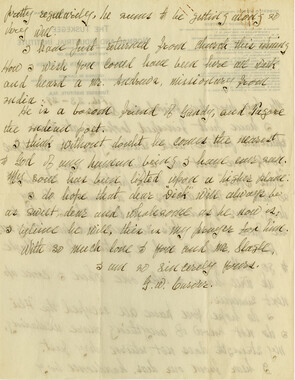 pretty regularly, he seems to be getting along so
very well.
I have just returned from church this evening
How I wish you could have been here with
and heard a Mr. Andrews, missionary from
India.
He is a bosom friend of Gandhi, and Tagore
the Indian poet.
I think without doubt he comes the nearest
to God of any human being I have ever seen.
My soul has been lifted upon a higher plane.
I do hope that dear Dick will always be
as sweet, and wholesome as he now is,
I believe he will, this is my prayer for him.
With so much love to you and Mr. Slade,
I am so sincerely yours.
G. W. Carver.